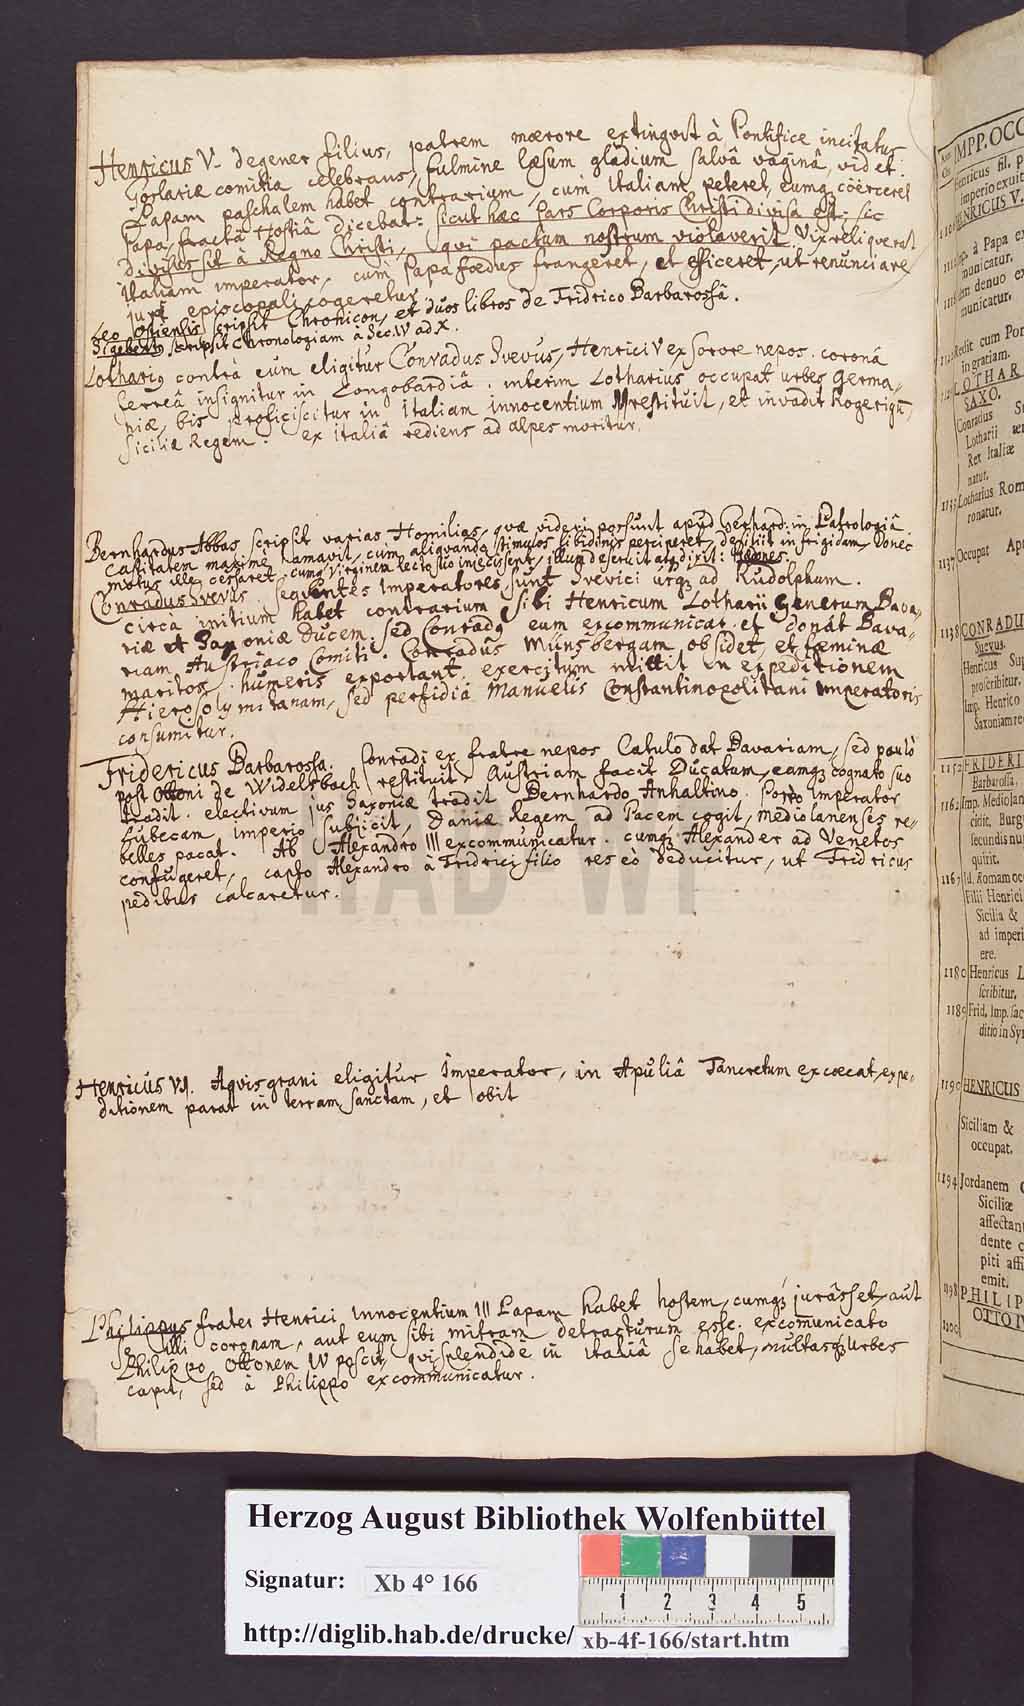 Henricus V. degener filius, patrem mœrore extingvit à Pontifice incitatus
Goslariæ comitia celebrans, fulmine læsum gladium salvâ vaginâ, videt.
Papam paschalem habet contrarium, cum Italiam peteret, eumq coërceret
Papa, fractâ Hostiâ dicebat: sicut hæc pars Corporis Christi divisa est, sic
divisus sit à Regno Christi, qui pactum nostrum violaverit. Vix reliquerat
Italiam imperator, cum Papa fœdus frangeret, et efficeret, ut renunciare
juri episcopali cogeretur
Leo Ostiensis scripsit Chronicon, et duos libros de Fridrico Barbarossâ.
Sigebertus scripsit Chronologiam à Sec. IV ad X.
Lotharius contrà eum eligitur Conradus Svevus, Henrici V ex sorore nepos. coronâ
ferreâ insignitur in Longobardiâ. interim Lotharius occupat urbes Germa-
niæ, bis proficiscitur in Italiam innocentium restituit, et invadit Rogerium,
Siciliæ Regem. ex italiâ rediens ad alpes moritur.
Bernhardus Abbas scripsit varias Homilias, qvæ videri possunt apud Gerhard: in Patrologiâ
Castitatem maximè hamavit, cum aliqvando stimulos libidinis perciperet, desiliit in frigidam, donec
motus ille cessaret. cumq Virginem lecto suo injecissent, illum deseruit atq dixit:
Conradus Svevus. seqventes Imperatores sunt Svevici usq ad Rudolphum.
circa initium habet contrarium sibi Henricum Lotharii Generum Bava-
riæ et Saxoniæ Ducem. sed Conradus eum excommunicat. et donat Bava-
riam Austriaco Comiti. Conradus Münsbergam obsidet, et fœminæ
maritos humeris exportant. exercitum mittit in expeditionem
Hierosolymitanam, sed perfidiâ Manuelis Constantinopolitani imperatoris
consumitur.
Fridericus Barbarossa. Conradi ex fratre nepos Catulo dat Bavariam, sed paulò
post Ottoni de Widelsbach restituit. Austriam facit Ducatum, eamq cognato suo
tradit. electivum jus Saxoniæ tradit Bernhardo Anhaltino. Porro Imperator
Lübecam imperio subjicit, Daniæ Regem ad Pacem cogit, mediolanenses re-
belles pacat. Ab Alexandro III excommunicatur. cumq Alexander ad Venetos
confugeret, capto Alexandro à Fridrici filio res eò deducitur, ut Fridricus
pedibus calcaretur.
Henricus VI. Aqvisgrani eligitur Imperator, in Apuliâ Tancretum excœcat, expe-
ditionem parat in terram sanctam, et obit
Philippus frater Henrici innocentium III Papam habet hostem, cumq jurâsset, aut
se illi coronam, aut eum sibi mitram detracturum esse. excomunicato
Philippo Ottonem IV poscit, qvi splendide in italiâ se habet, multasq urbes
capit, sed à Philippo excommunicatur.
IMPP. OCC
Henricus fil. p
imperio exuit
HENRICUS V.
à Papa ex
municatur.
denuo ex
municatur.
Redit cum Pon
in gratiam.
LOTHAR
SAXO.
Conradus
Lotharii
Rex Italiæ
natur.
1133 Lotharius Rom
ronatur.
1137 Occupat Apu
1138 CONRADU
Suevus.
Henricus Sup
proscribitur.
Imp. Henrico
Saxoniam re
1152 FRIDERI
Barbarossa.
1162 Imp. Mediolan
cidit, Burg
secundis nu
quirit.
1167 Id. Romam oc
Filii Henrici
Sicilia &
ad imperi
ere.
1180 Henricus L
scribitur.
1189 Frid. Imp. sac
ditio in Syr
1190 HENRICUS
Siciliam &
occupat.
1194 Jordanem
Siciliæ
affectan
dente c
piti affi
emit.
1198 PHILIP
OTTO IV
HAB-WF
Herzog August Bibliothek Wolfenbüttel
Signatur: Xb 4° 166
1 2 3 4 5
http://diglib.hab.de/drucke/ xb-4f-166/start.htm